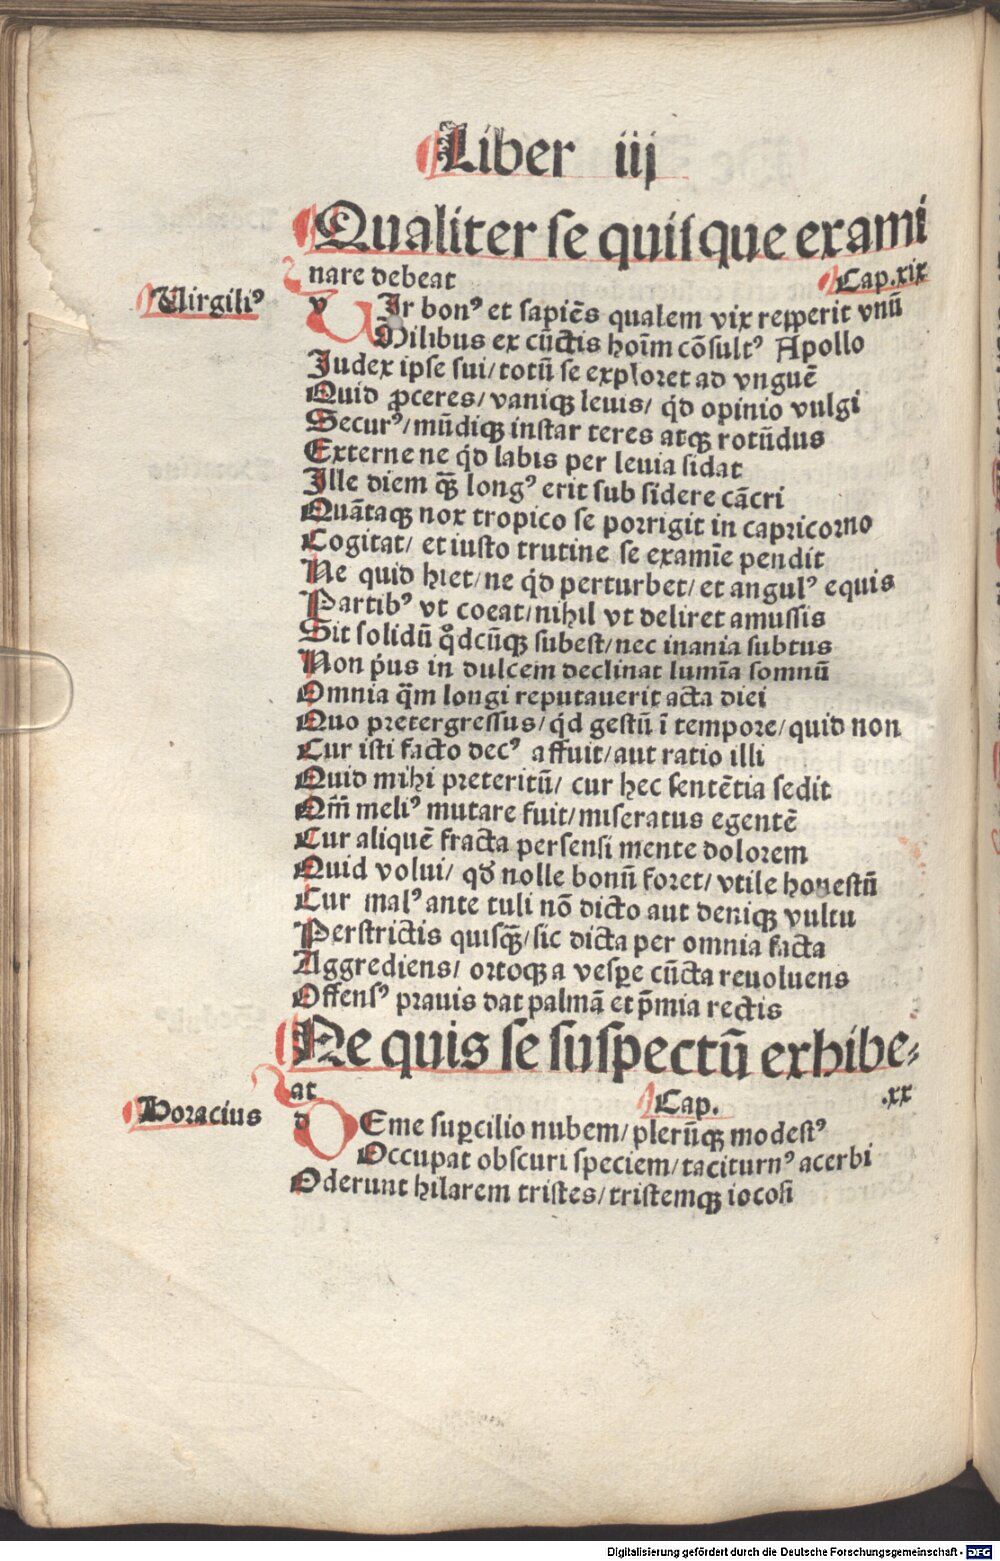 Liber iij
Qualiter se quisque exami
nare debeat Cap.xix
Virgiliꝰ
v Ir bonꝰ et sapiēs qualem vix rep̱perit vnū
Milibus ex cūctis hoīm cōsultꝰ Apollo
Iudex ipse sui/totū se exploret ad vnguē
Quid ꝓceres/vaniqꝫ leuis/ qͥd opinio vulgi
Securꝰ/mūdiqꝫ instar teres atqꝫ rotūdus
Externe ne qͥd labis per leuia sidat
Ille diem qꝫ̄ longꝰ erit sub sidere cācri
Quātaqꝫ nox tropico se porrigit in capricorno
Cogitat/ et iusto trutine se examīe pendit
Ne quid hiet/ne qͥd perturbet/et angulꝰ equis
Partibꝰ vt coeat/nihil vt deliret amussis
Sit solidū qͦdcūqꝫ subest/nec inania subtus
Non pͥus in dulcem declinat lumīa somnū
Omnia q̄m longi reputauerit acta diei
Quo pretergressus/qͥd gestū ī tempore/quid non
Cur isti facto decꝰ affuit/aut ratio illi
Quid mihi preteritū/ cur hec sentētia sedit
Qm̄ meliꝰ mutare fuit/miseratus egentē
Cur aliquē fracta persensi mente dolorem
Quid volui/ qđ nolle bonū foret/vtile honestū
Cur malꝰ ante tuli nō dicto aut deniqꝫ vultu
Perstrictis quisqꝫ̄/sic dicta per omnia facta
Aggrediens/ ortoqꝫ a vesꝑe cūcta reuoluens
Offensꝰ prauis dat palmā et p̄mia rectis
Ne quis se suspectū exhibe⸗
at Cap. .xx
Horacius
d Eme suꝑcilio nubem/plerūqꝫ modestꝰ
Occupat obscuri speciem/taciturnꝰ acerbi
Oderunt hilarem tristes/tristemqꝫ iocosi
Digitalisierung gefördert durch die Deutsche Forschungsgemeinschaft - DFG